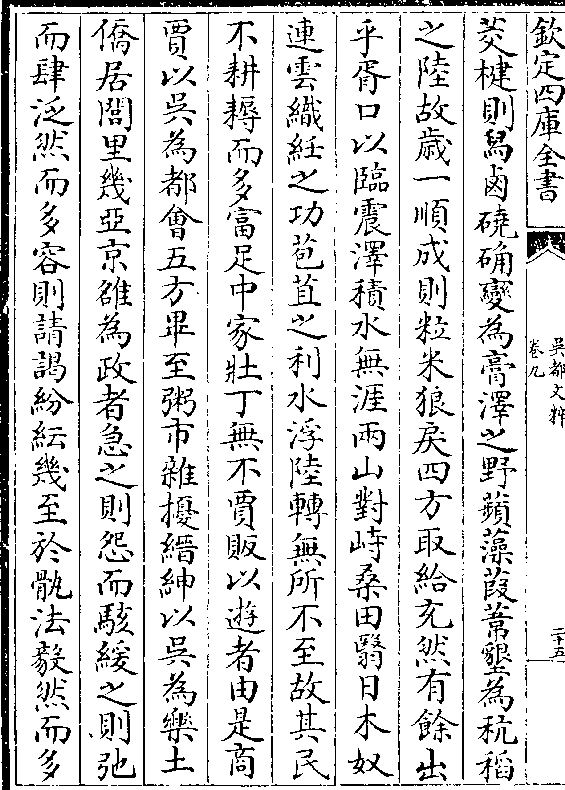 欽定四庫全書
吳都文粹
卷九
二十五
茭楗則舄鹵磽确變為膏澤之野蘋藻葭葦墾為秔稻
之陸故歲一順成則粒米狼戾四方取給充然有餘出
乎胥口以臨震澤積水無涯兩山對峙桑田翳日木奴
連雲織紝之功苞苴之利水浮陸轉無所不至故其民
不耕耨而多富足中家壯丁無不賈販以遊者由是商
賈以吳為都會五方畢至粥市雜擾縉紳以吳為樂土
僑居閭里幾亞京雒為政者急之則怨而駭緩之則弛
而肆泛然而多容則請謁紛紜幾至於骫法毅然而多